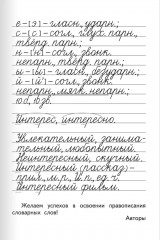 е-(э)-гласн., ударн.;
с-(с)-согл., глух. парн.,
твёрд. парн.;
н-(н)-согл., звонк.
непарн., твёрд. парн.;
ы-(ы)-гласн., безударн.;
й-(й')-согл., звонк.
непарн., мягк. непарн.;
10 б., 10 зв.
Интерес, интересно.
Увлекательный, занима-
тельный, любопытный.
Неинтересный, скучный.
Интересный (рассказ)-
прил., м. р., И. п., ед. ч.
Интересный фильм.
Желаем успехов в освоении правописания
словарных слов!
Авторы